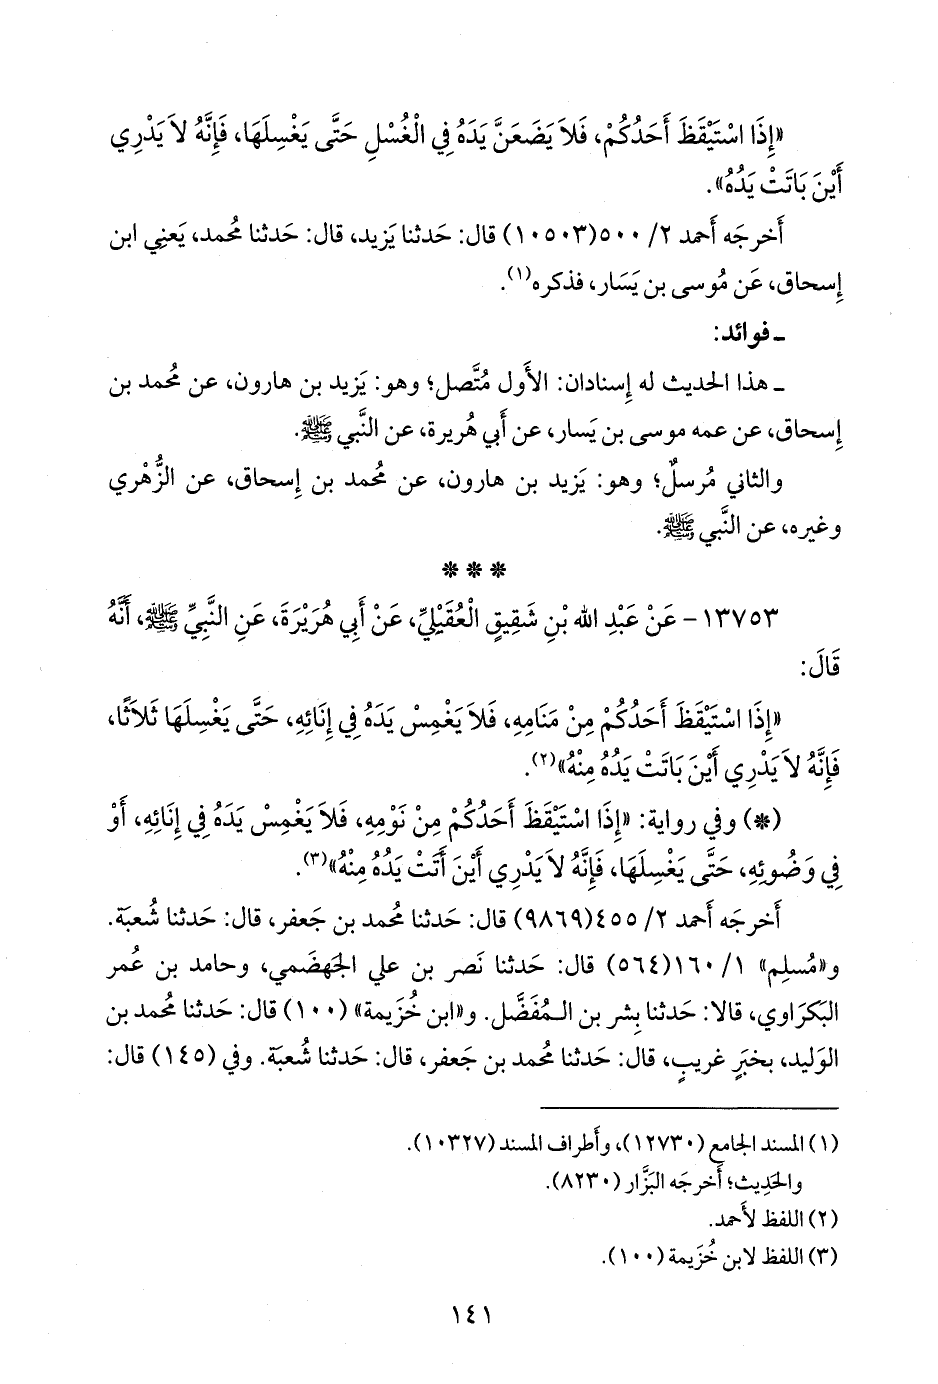 «إِذَا اسْتَيْقَظَ أَحَدُكُمْ، فَلاَ يَضَعَنَّ يَدَهُ فِي الْغُسْلِ حَتَّى يَغْسِلَهَا، فَإِنَّهُ لاَ يَدْرِي
أَيْنَ بَاتَتْ يَدُهُ».
أَخرجَه أَحمد ٢/ ٥٠٠(١٠٥٠٣) قال: حَدثنا يَزيد، قال: حَدثنا مُحمد، يَعنِي ابن
إِسحاق، عَن مُوسى بن يَسَار، فذكره(١).
ـ فوائد:
ـ هذا الحديث له إِسنادان: الأَول مُتَّصل؛ وهو: يَزيد بن هارون، عن مُحمد بن
إِسحاق، عن عمه موسى بن يَسار، عن أَبي هُريرة، عن النَّبي ﷺ.
والثاني مُرسلٌ؛ وهو: يَزيد بن هارون، عن مُحمد بن إِسحاق، عن الزُّهْري
وغيره، عن النَّبي ﷺ.
* * *
١٣٧٥٣- عَنْ عَبْدِ الله بْنِ شَقِيقٍ الْعُقَيْلِيِّ، عَنْ أَبِي هُرَيْرَةَ، عَنِ النَّبِيِّ ﷺ، أَنَّهُ
قَالَ:
«إِذَا اسْتَيْقَظَ أَحَدُكُمْ مِنْ مَنَامِهِ، فَلاَ يَغْمِسْ يَدَهُ فِي إِنَائِهِ، حَتَّى يَغْسِلَهَا ثَلاَثًا،
فَإِنَّهُ لاَ يَدْرِي أَيْنَ بَاتَتْ يَدُهُ مِنْهُ»(٢).
(*) وفي رواية: «إِذَا اسْتَيْقَظَ أَحَدُكُمْ مِنْ نَوْمِهِ، فَلاَ يَغْمِسْ يَدَهُ فِي إِنَائِهِ، أَوْ
فِي وَضُوئِهِ، حَتَّى يَغْسِلَهَا، فَإِنَّهُ لاَ يَدْرِي أَيْنَ أَتَتْ يَدُهُ مِنْهُ»(٣).
أَخرجَه أَحمد ٢/ ٤٥٥(٩٨٦٩) قال: حَدثنا مُحمد بن جَعفر، قال: حَدثنا شُعبَة.
و«مُسلِم» ١/ ١٦٠(٥٦٤) قال: حَدثنا نَصر بن علي الجَهضَمي، وحامد بن عُمر
البَكرَاوي، قالا: حَدثنا بِشر بن الـمُفَضَّل. و«ابن خُزَيمة» (١٠٠) قال: حَدثنا مُحمد بن
الوَليد، بخبَرٍ غريبٍ، قال: حَدثنا مُحمد بن جَعفر، قال: حَدثنا شُعبَة. وفي (١٤٥) قال:
(١) المسند الجامع (١٢٧٣٠)، وأَطراف المسند (١٠٣٢٧).
والحَدِيث؛ أَخرجَه البَزَّار (٨٢٣٠).
(٢) اللفظ لأَحمد.
(٣) اللفظ لابن خُزَيمة (١٠٠).
١٤١